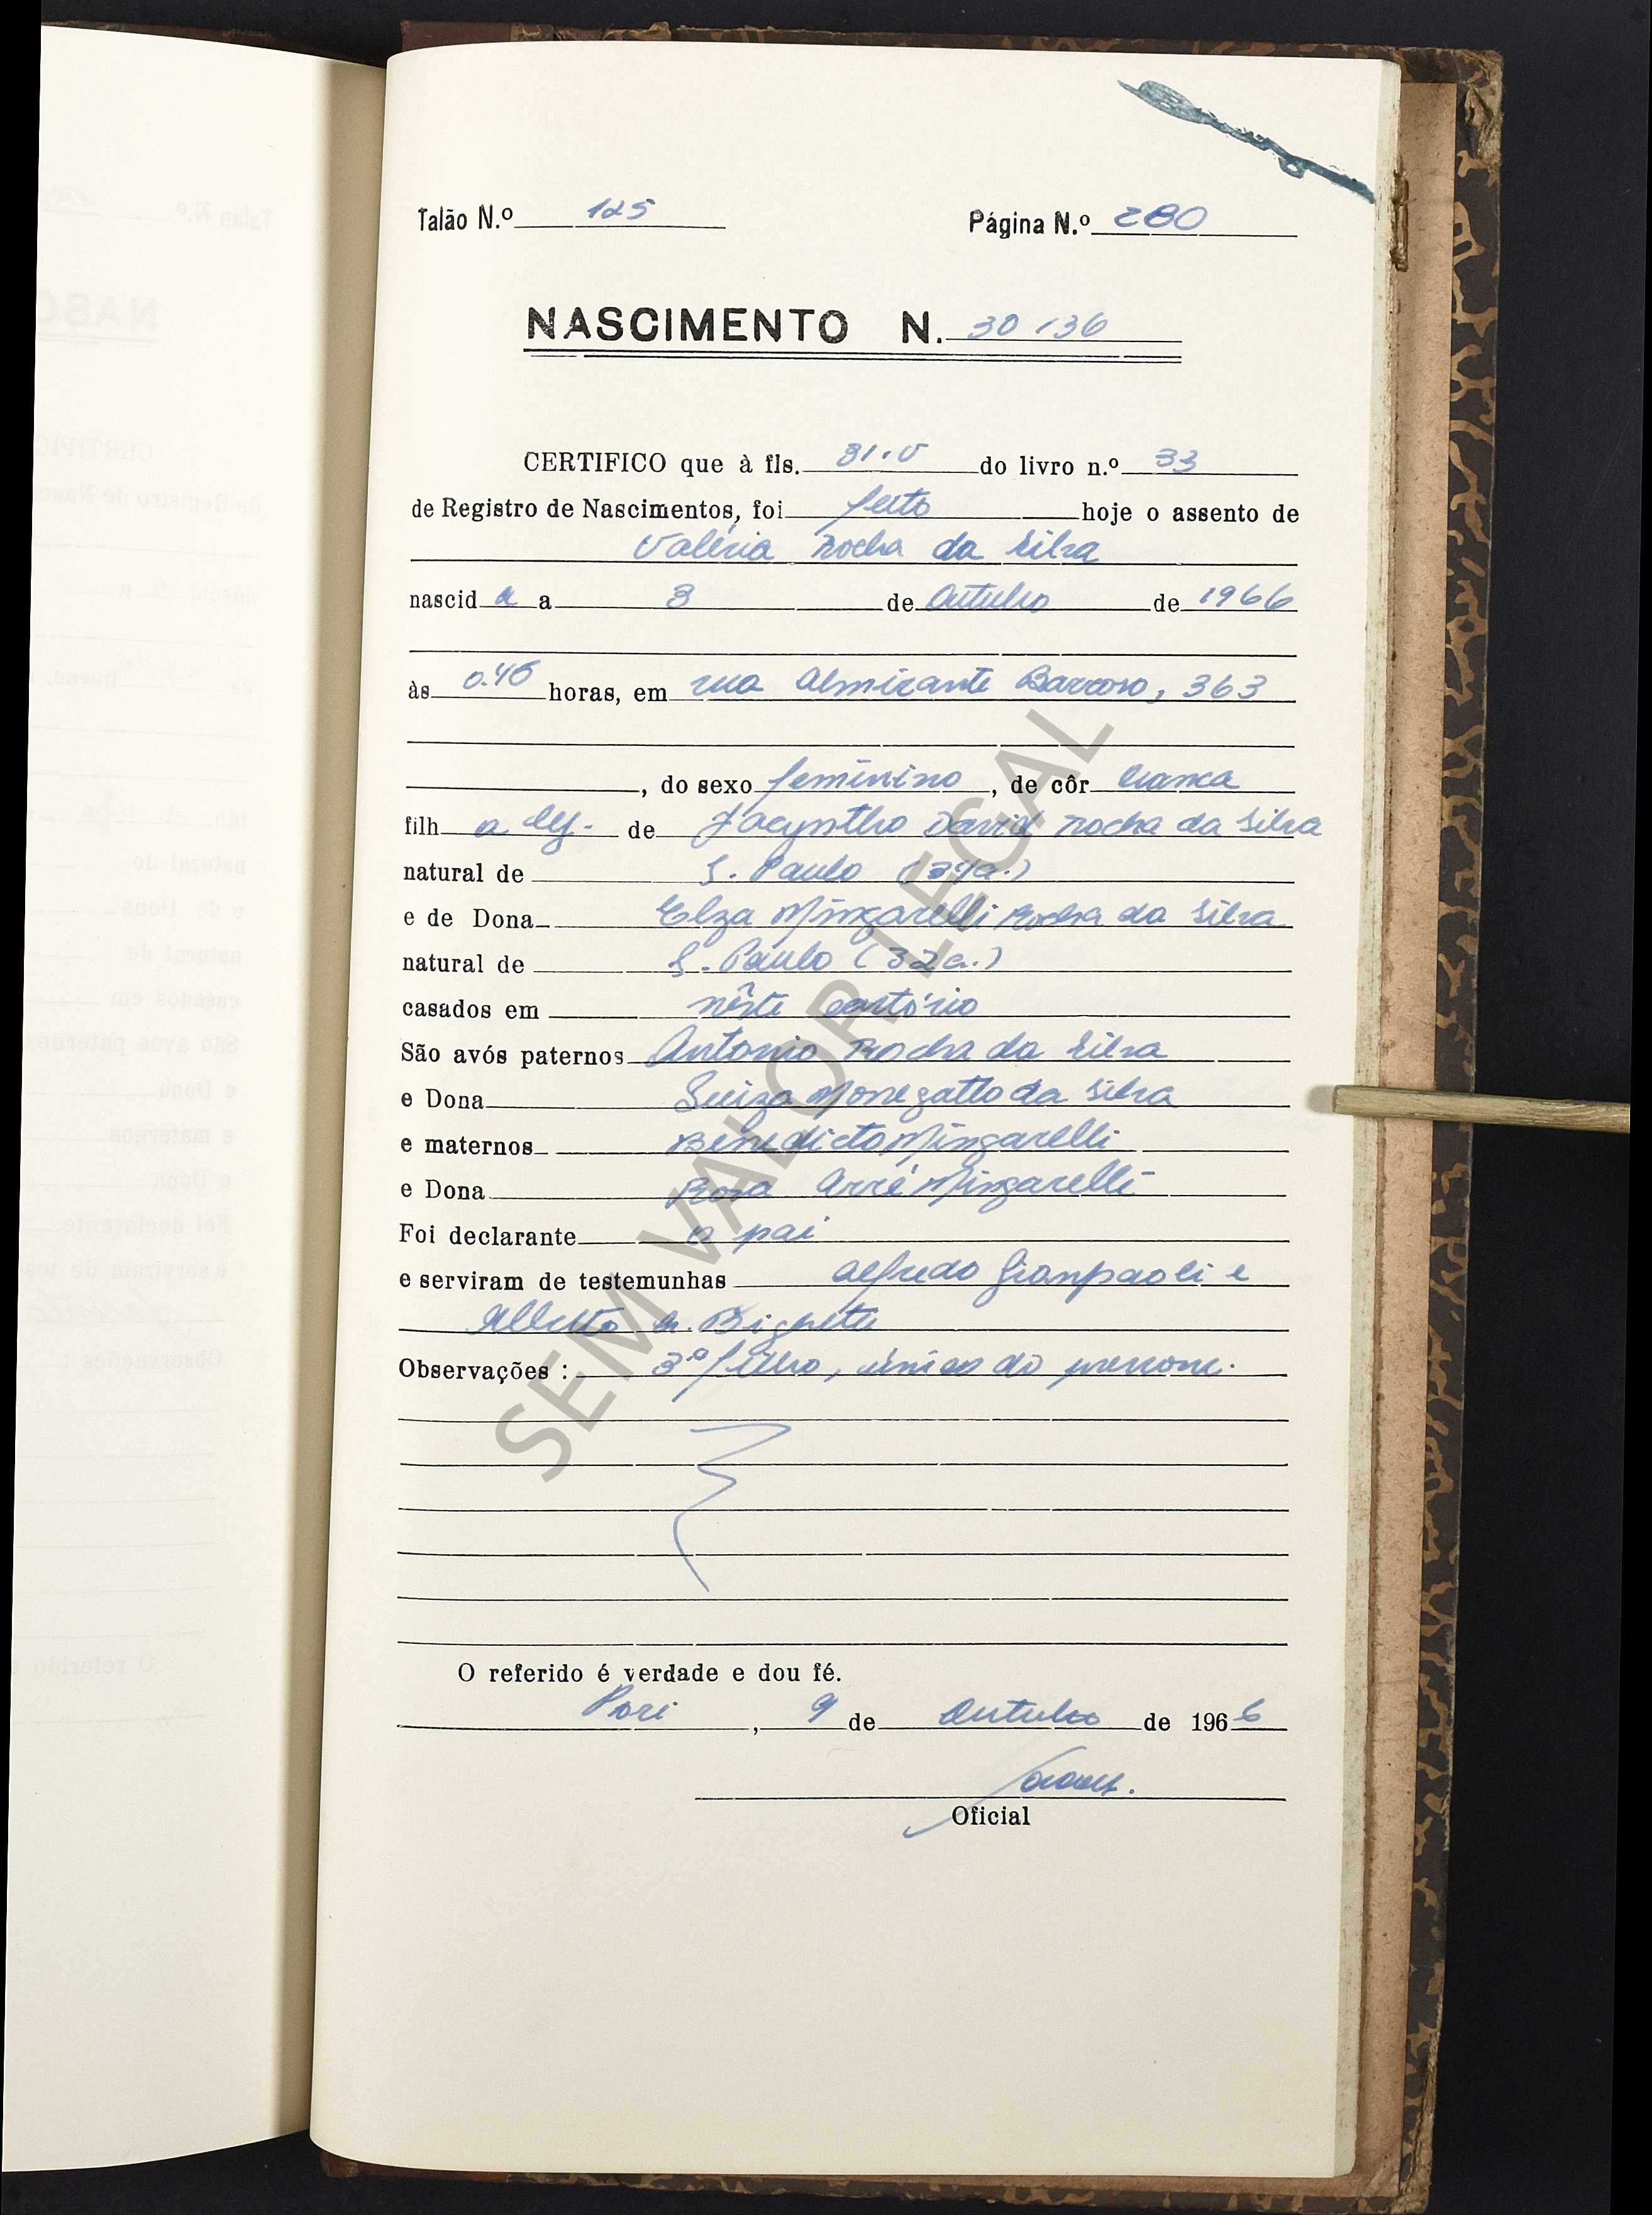 Talão N.º 125 Página N.º 280
NASCIMENTO N. 30136
CERTIFICO que à fls. 31.v do livro n.º 33
de Registro de Nascimentos, foi feito hoje o assento de
Valéria Rocha da Silva
nascid a a 3 de Outubro de 1966
às 0.45 horas, em rua Almirante Barroso, 363
, do sexo feminino, de côr branca
filh a leg. de Jacyntho David Rocha da Silva
natural de S. Paulo (39a.)
e de Dona Elza Minzarelli Rocha da Silva
natural de S. Paulo (32a.)
casados em nêste cartório
São avós paternos Antonio Rocha da Silva
e Dona Luiza Monegatto da Silva
e maternos Benedicto Minzarelli
e Dona Rosa Arré Minzarelli
Foi declarante o pai
e serviram de testemunhas Alfredo Gianpaoli e
Alberto
Observações : 3º filho, único do prenome.
O referido é verdade e dou fé.
Pari, 9 de Outubro de 1966
Oficial
SEM VALOR LEGAL